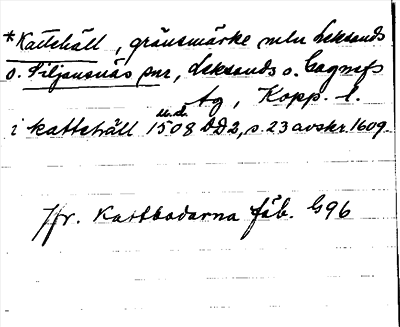 *Kattehäll, gränsmärke mln Leksands
o. Siljansnäs snr, Leksands o. Gagnefs
tg, Kopp. l.
u.d.
i kattehäll 1508 DD2, s. 23 avskr. 1609.
Jfr. Kattbodarna fäb. G96